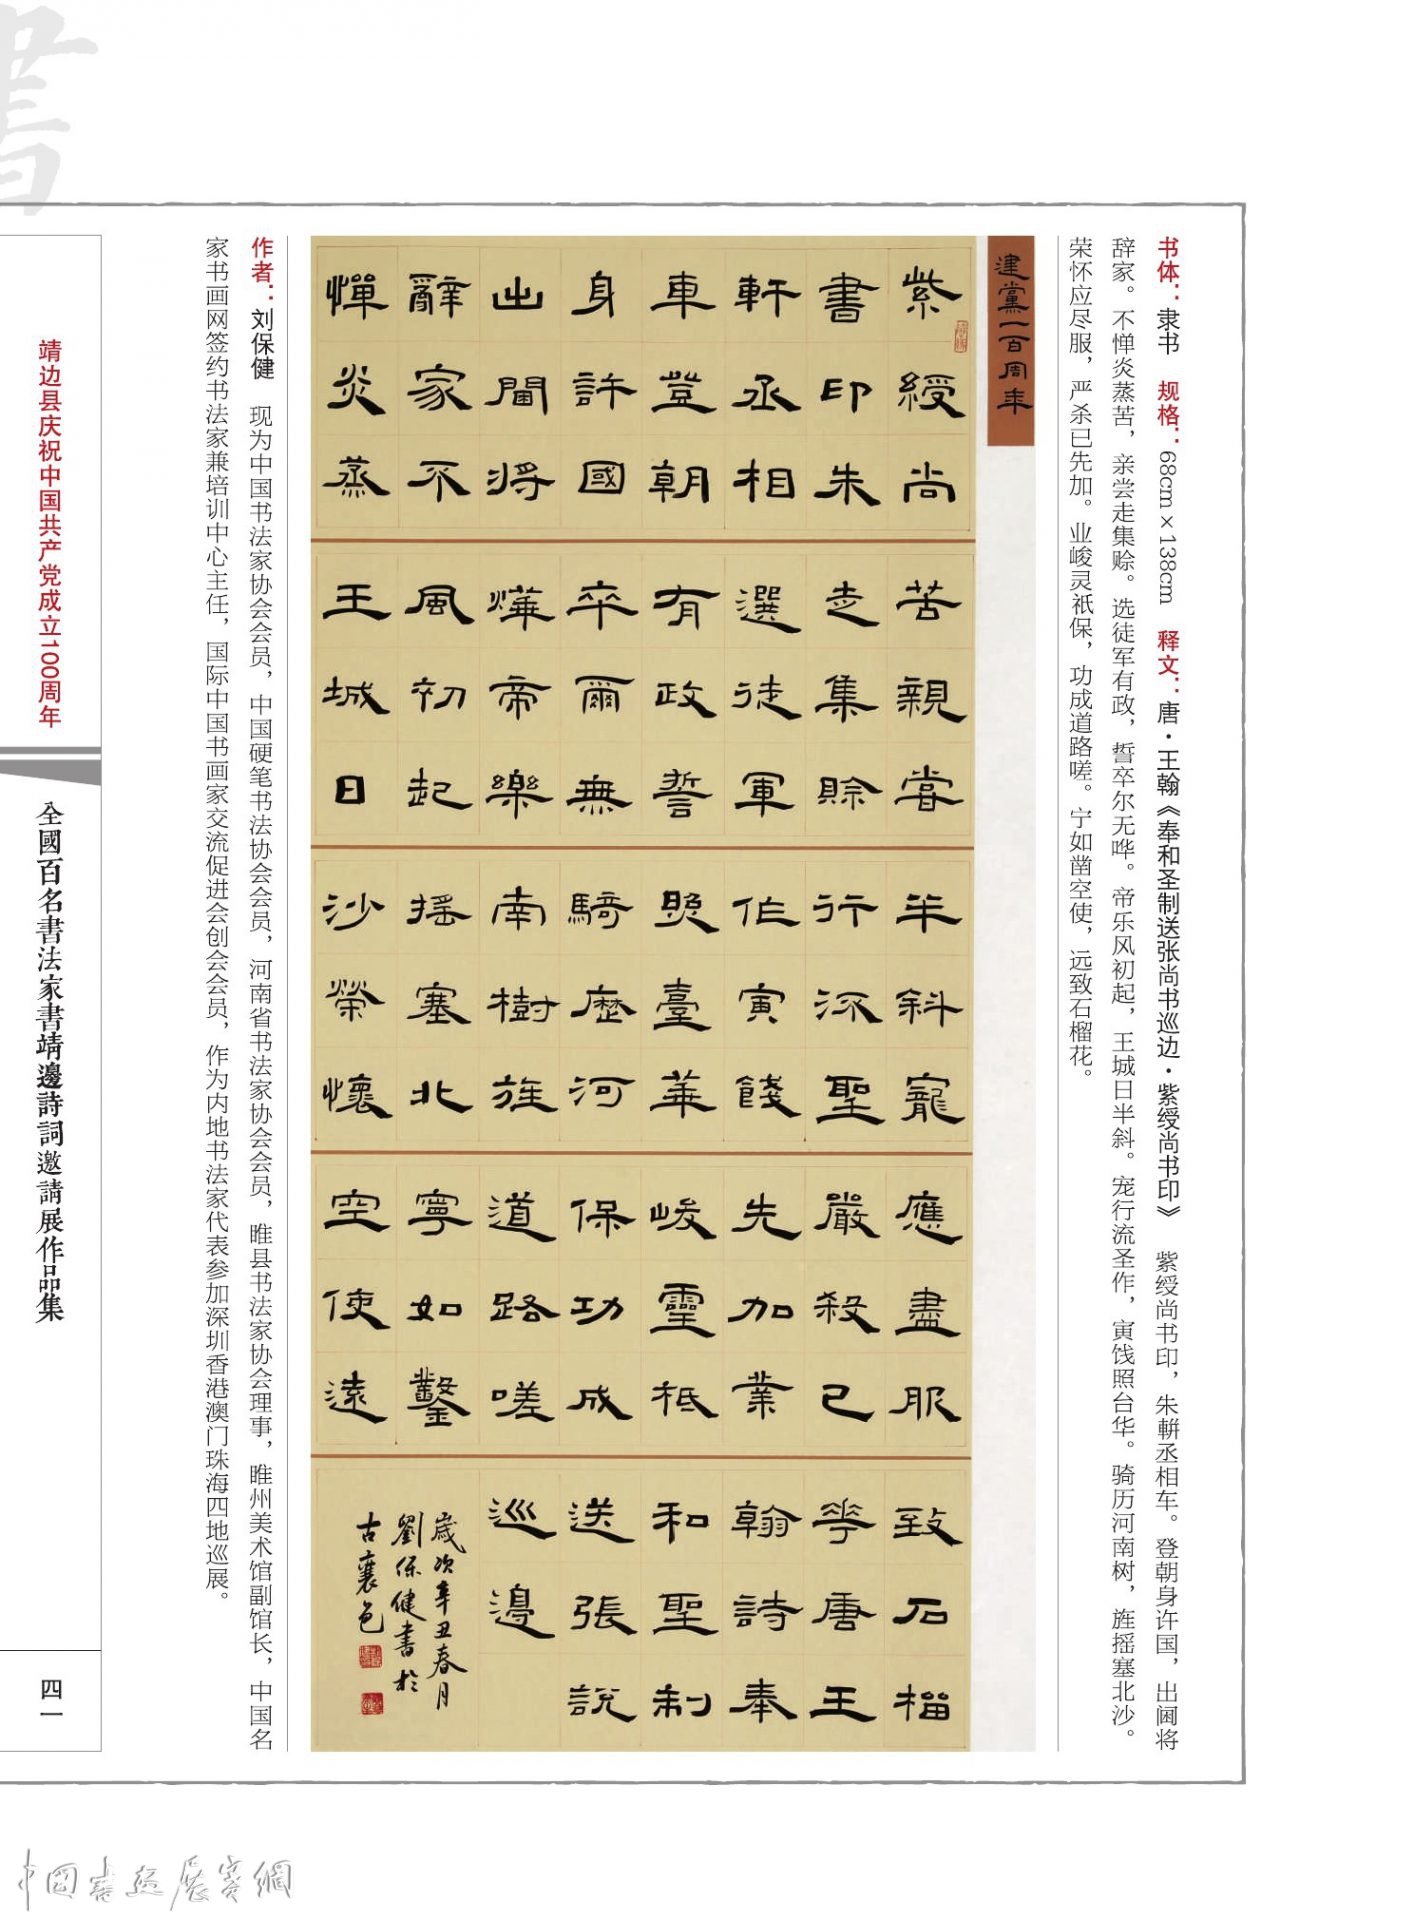 书体：隶书　规格：68cm×138cm　释文：唐·王翰《奉和圣制送张尚书巡边·紫绶尚书印》　紫绶尚书印，朱軿丞相车。登朝身许国，出阃将
辞家。不惮炎蒸苦，亲尝走集赊。选徒军有政，誓卒尔无哗。帝乐风初起，王城日半斜。宠行流圣作，寅饯照台华。骑历河南树，旌摇塞北沙。
荣怀应尽服，严杀已先加。业峻灵祇保，功成道路嗟。宁如凿空使，远致石榴花。
建黨一百周年
紫綬尚
書印朱
軒丞相
車登朝
身許國
出閫將
辭家不
憚炎蒸
苦親嘗
走集賒
選徒軍
有政誓
卒爾無
燁帝樂
風初起
王城日
半斜寵
行流聖
作寅餞
照臺華
騎歷河
南樹旌
搖塞北
沙榮懷
應盡服
嚴殺已
先加業
峻靈祇
保功成
道路嗟
寧如鑿
空使遠
致石榴
花唐王
翰詩奉
和聖制
送張說
巡邊
歲次辛丑春月
劉保健書於
古襄邑
作者：刘保健　现为中国书法家协会会员，中国硬笔书法协会会员，河南省书法家协会会员，睢县书法家协会理事，睢州美术馆副馆长，中国名
家书画网签约书法家兼培训中心主任，国际中国书画家交流促进会创会会员，作为内地书法家代表参加深圳香港澳门珠海四地巡展。
靖边县庆祝中国共产党成立100周年
全國百名書法家書靖邊詩詞邀請展作品集
四一
書
中國書画展賽網